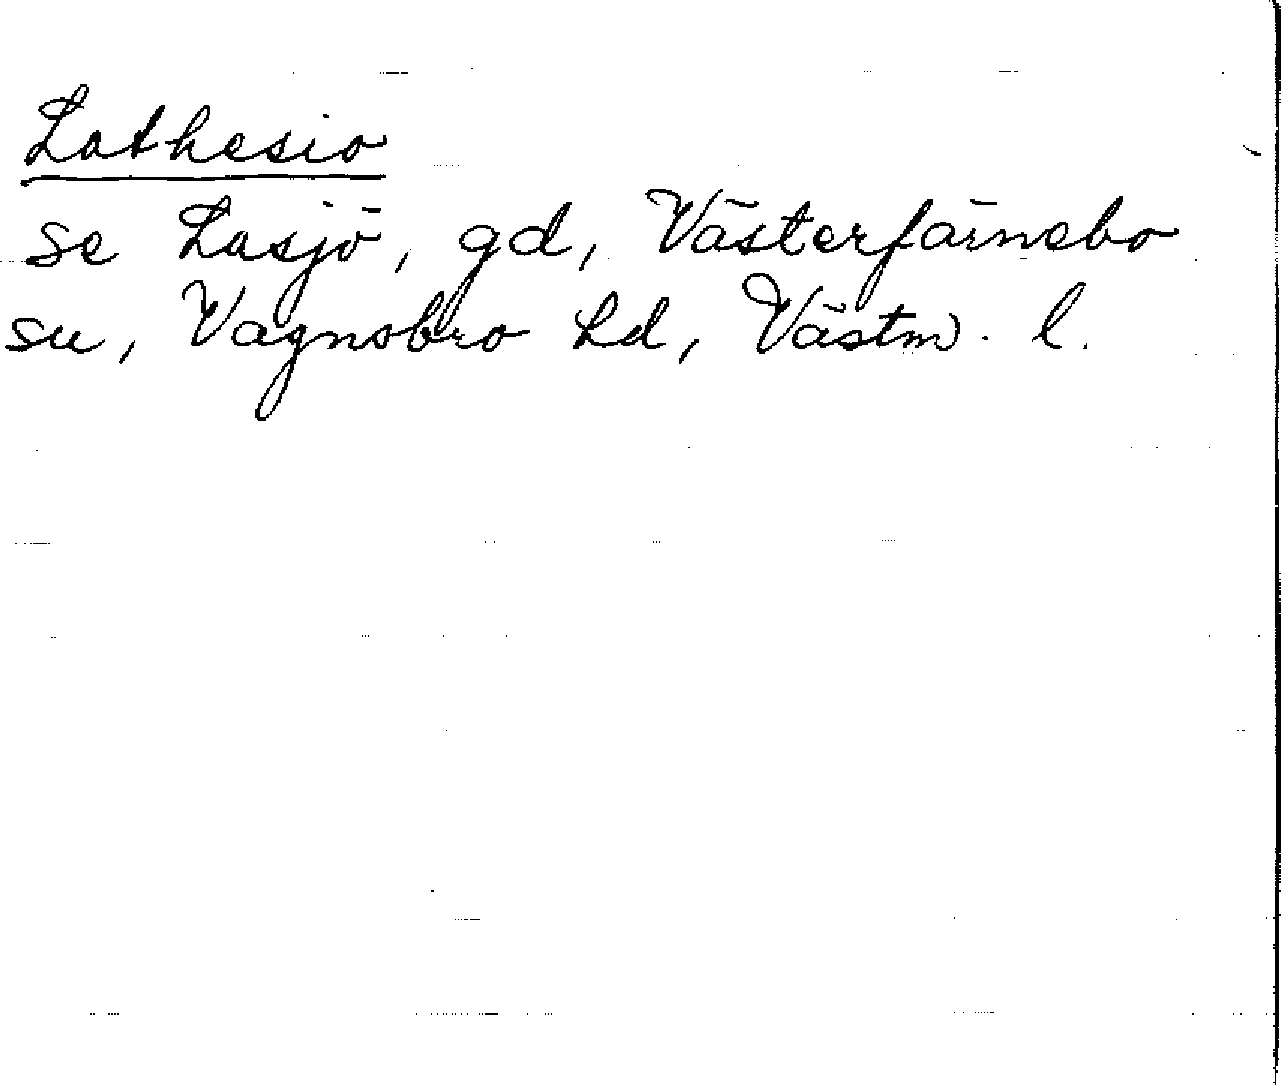 Lathesio
se Lasjö, gd, Västerfärnebo
sn, Vagnsbro hd, Västm. l.